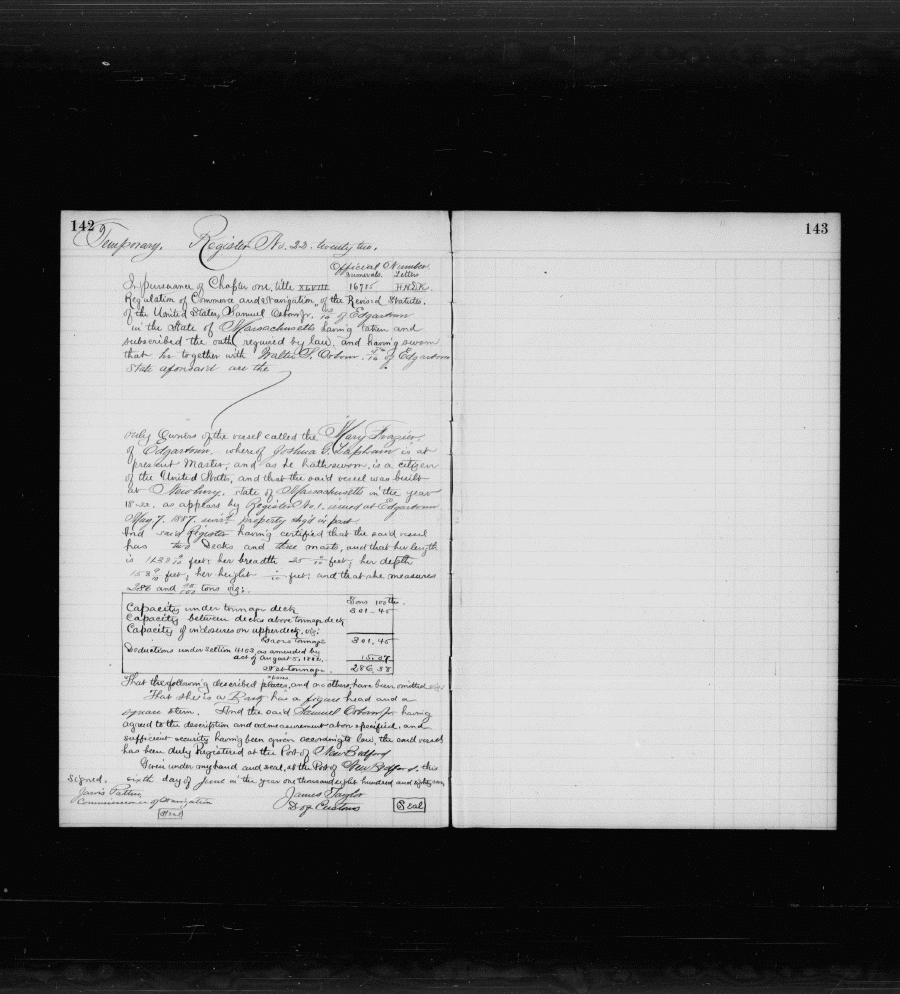 142
143
Temporary. Register No. 22. twenty two.
Official Number.
Numerals. Letters
In pursuance of Chapter one, title XLVIII 16715 H.N.D.K.
Regulation of Commerce and Navigation, of the Revised Statutes.
of the United States, Samuel Osborn Jr. of Edgartown
in the State of Massachusetts having taken and
subscribed the oath required by law, and having sworn
that he together with Walter S. Osborn. of Edgartown
State aforesaid are the
only Owners of the vessel called the Mary Frazier,
of Edgartown, whereof Joshua G. Lapham is at
present Master, and as he hath sworn, is a citizen
of the United States, and that the said vessel was built
at Newbury, state of Massachusetts in the year
as appears by Register No. 1. issued at Edgartown
May 7. 1887. property chg'd in part
And said Register having certified that the said vessel
has two Decks and three masts, and that her length
is feet; her breadth 25 feet; her depth
feet; her height feet; and that she measures
286 and tons viz:.
Tons 100ths.
Capacity under tonnage deck 301-45
Capacity between decks above tonnage deck
Capacity of inclosures on upper deck, viz:
Gross tonnage 301.45
Deductions under Section 4153, as amended by
act of August 5, 1882. 15.07
Net tonnage. 286.38
That the following described spaces, and no others, have been omitted viz:
That she is a Bark has a figure head and a
square stern. And the said Samuel Osborn Jr. having
agreed to the description and admeasurement above specified, and
sufficient security having been given according to law, the said vessel
has been duly Registered at the Port of New Bedford
Given under my hand and seal, at the Port of New Bedford. this
Signed. sixth day of June in the year one thousand eight hundred and eighty seven
Jarvis Patten James Taylor
Commissioner of Navigation D of Customs Seal
Seal